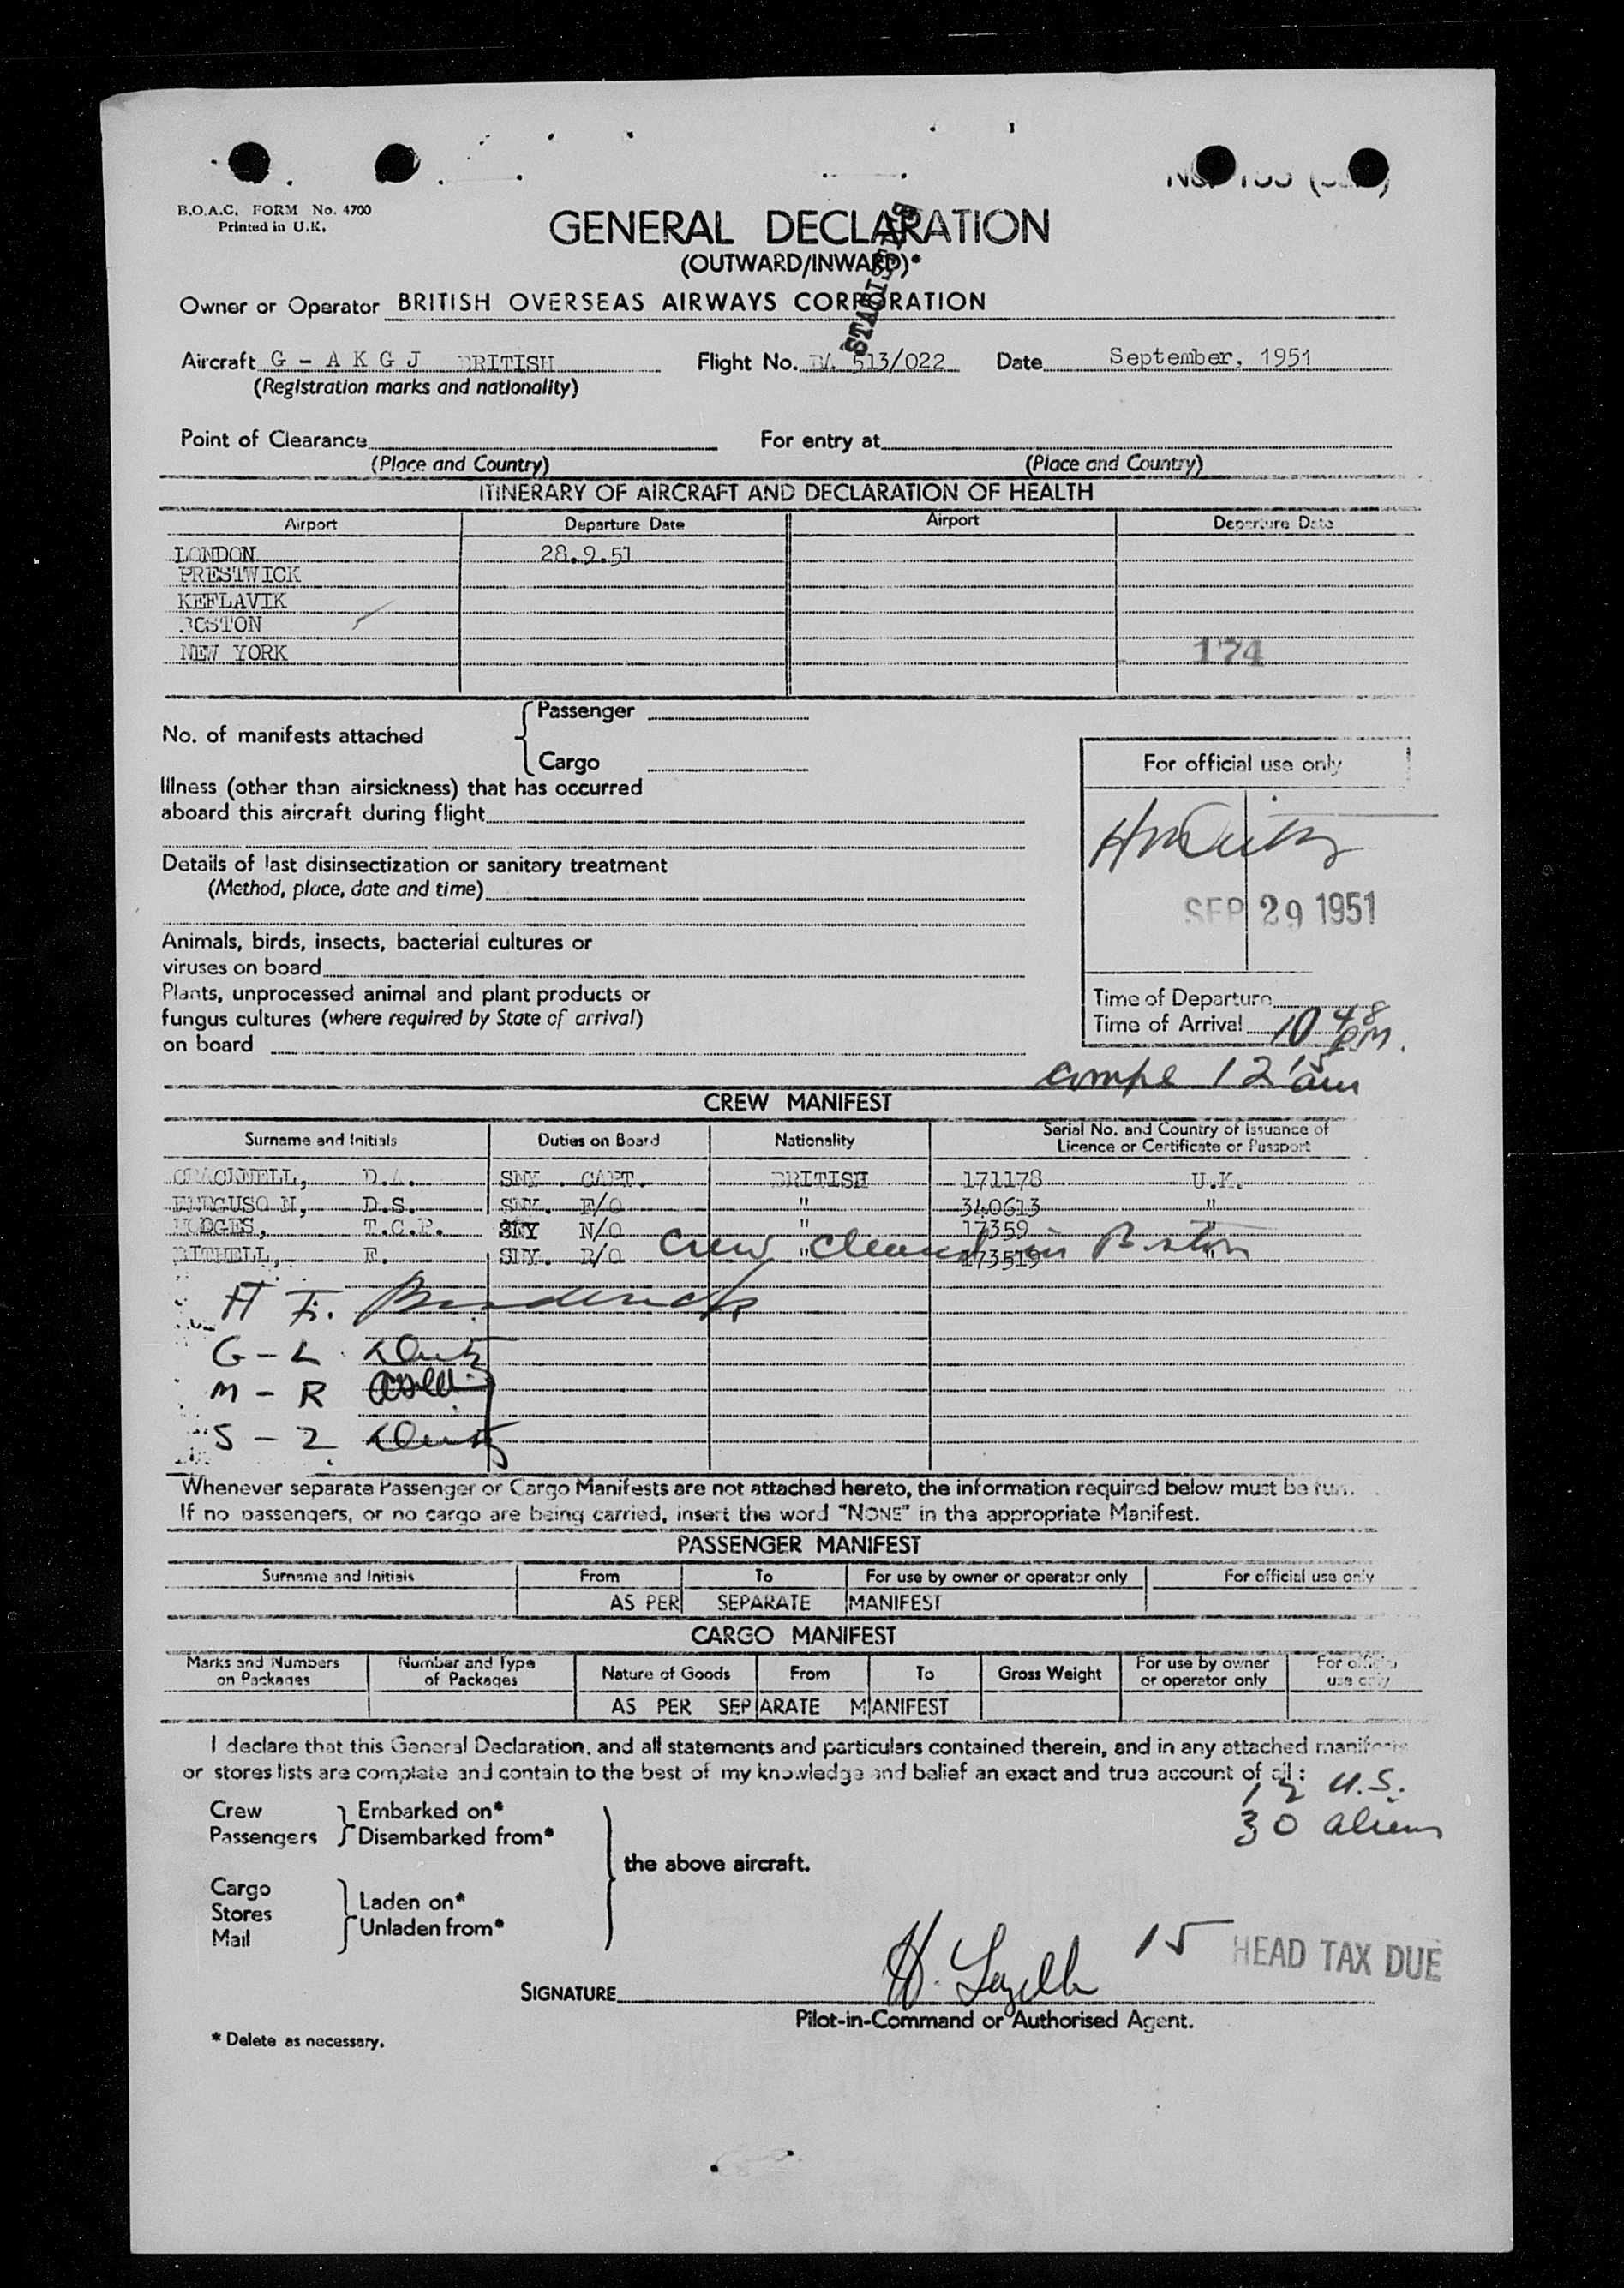 B.O.A.C. FORM No. 4700
Printed in U.K.
GENERAL DECLARATION
(OUTWARD/INWARD)*
STATISTICS
Owner or Operator BRITISH OVERSEAS AIRWAYS CORPORATION
Aircraft G - A K G J BRITISH Flight No. BA 513/022 Date September, 1951
(Registration marks and nationality)
Point of Clearance For entry at
(Place and Country) (Place and Country)
ITINERARY OF AIRCRAFT AND DECLARATION OF HEALTH
Airport Departure Date Airport Departure Date
LONDON 28.9.51
PRESTWICK
KEFLAVIK
BOSTON
NEW YORK 174
No. of manifests attached { Passenger
Cargo
For official use only
Illness (other than airsickness) that has occurred
aboard this aircraft during flight
Details of last disinsectization or sanitary treatment
(Method, place, date and time)
SEP 29 1951
Animals, birds, insects, bacterial cultures or
viruses on board
Plants, unprocessed animal and plant products or
fungus cultures (where required by State of arrival)
on board
Time of Departure
Time of Arrival 10 48 PM.
12 15 am
CREW MANIFEST
Surname and Initials Duties on Board Nationality Serial No. and Country of Issuance of Licence or Certificate or Passport
CRACKNELL, D.A. SNY. CAPT. BRITISH 171178 U.K.
FERGUSON, D.S. SNY. F/O " 340613 "
HODGES, T.C.P. SNY N/O " 17359 "
BITHELL, F. SNY. R/O " 173519 "
Crew cleared in Boston
G - L
M - R
S - Z
Whenever separate Passenger or Cargo Manifests are not attached hereto, the information required below must be
If no passengers, or no cargo are being carried, insert the word "NONE" in the appropriate Manifest.
PASSENGER MANIFEST
Surname and Initials From To For use by owner or operator only For official use only
AS PER SEPARATE MANIFEST
CARGO MANIFEST
Marks and Numbers on Packages Number and Type of Packages Nature of Goods From To Gross Weight For use by owner or operator only For official use only
AS PER SEPARATE MANIFEST
I declare that this General Declaration, and all statements and particulars contained therein, and in any attached manifests
or stores lists are complete and contain to the best of my knowledge and belief an exact and true account of all:
12 U.S.
30 aliens
Crew } Embarked on*
Passengers } Disembarked from*
the above aircraft.
Cargo
Stores } Laden on*
Mail } Unladen from*
15 HEAD TAX DUE
SIGNATURE
Pilot-in-Command or Authorised Agent.
* Delete as necessary.